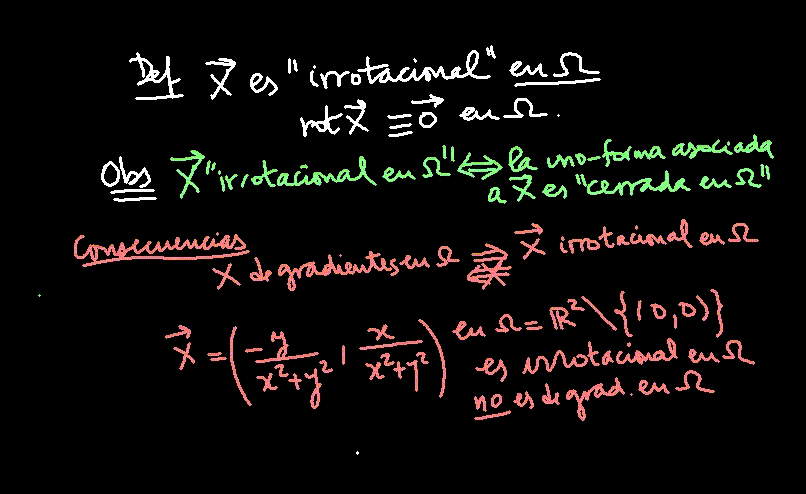 Def X⃗ es "irrotacional" en Ω
rot X⃗ ≡ 0⃗ en Ω.
Obs X⃗ "irrotacional en Ω" ⟺ la uno-forma asociada
a X⃗ es "cerrada en Ω"
Consecuencias
X de gradientes en Ω ⇒ ⇍ X⃗ irrotacional en Ω
X⃗ = (-y/(x²+y²), x/(x²+y²)) en Ω = ℝ² \ {(0,0)}
es irrotacional en Ω
no es de grad. en Ω